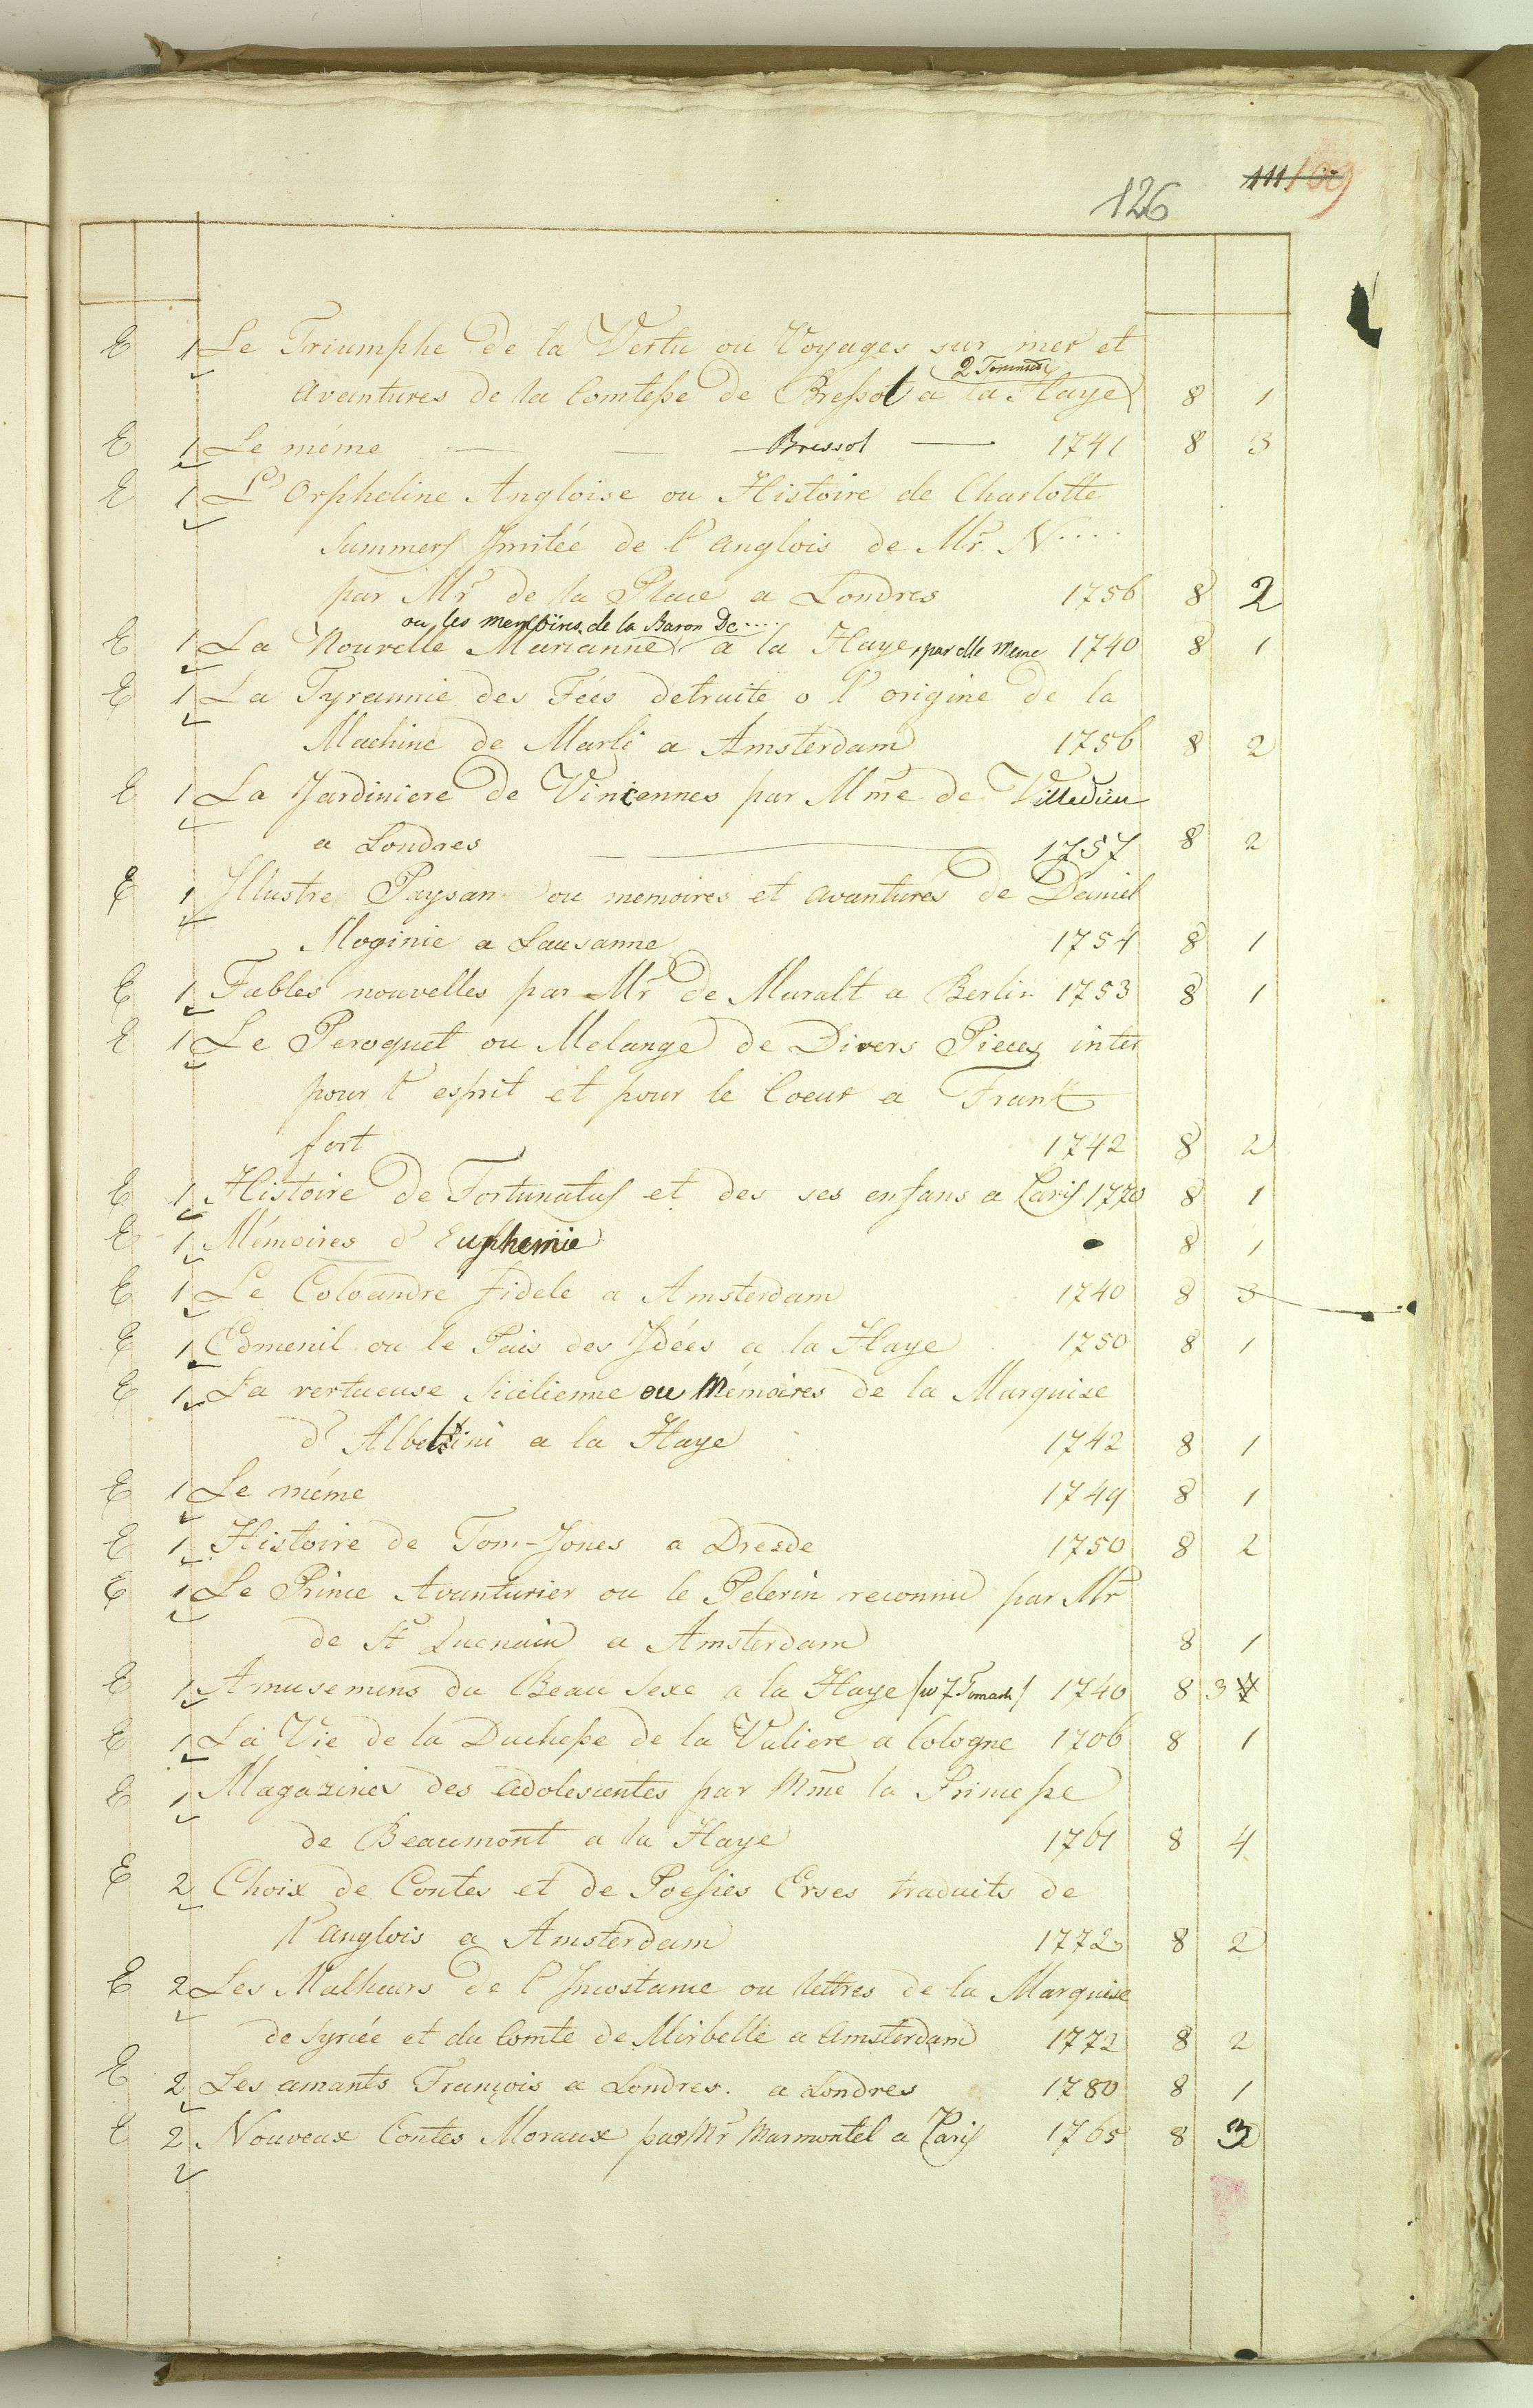 126 111 109
E 1 Le Triumphe de la Vertu ou Voyages sur mer et
2 Tommes
Avantures de la Comtesse de Bressol a la Haye 8 1
E 1 Le méme — — Bressol — 1741 8 3
E 1 L'Orpheline Angloise ou Histoire de Charlotte
Summers Jmitée de l'anglois de Mr. N....
par Mr de la Place a Londres 1756 8 2
ou les memoires de la Baron De....
E 1 La Nouvelle Marianne a la Haye, par elle meme 1740 8 1
E 1 La Tyrannie des Fées detruite o l'origine de la
Machine de Marli a Amsterdam 1756 8 2
E 1 La Jardiniere de Vincennes par Mme de Villedieu
a Londres — 1757 8 2
E 1 Jllustre Paysan ou memoires et avantures de Daniel
Moginie a Lausanne 1754 8 1
E 1 Fables nouvelles par Mr de Muralt a Berlin 1753 8 1
E 1 Le Peroquet ou Melange de Divers Pieces inter
pour l'esprit et pour le Coeur a Frank
fort 1742 8 2
E 1 Histoire de Fortunatus et des ses enfans a Paris 1770 8 1
E 1 Mémoires d'Euphemie 8 1
E 1 Le Coloandre fidele a Amsterdam 1740 8 3
E 1 Edmenil ou le Pais des Jdées a la Haye 1750 8 1
E 1 La vertueuse Sicilienne ou Mémoires de la Marquise
d'Albelini a la Haye 1742 8 1
E 1 Le méme 1749 8 1
E 1 Histoire de Tom-Jones a Dresde 1750 8 2
E 1 Le Prince Avanturier ou le Pelerin reconnu par Mr
de St Quenain a Amsterdam 8 1
E 1 Amusemens du Beau Sexe a la Haye (w 7 Tomach) 1740 8 3 7
E 1 La Vie de la Duchesse de la Valiere a Cologne 1706 8 1
E 1 Magazines des adolescentes par Mme la Princesse
de Beaumont a la Haye 1761 8 4
E 2 Choix de Contes et de Poesies Erses traduits de
l'anglois a Amsterdam 1772 8 2
E 2 Les Malheurs de l'Jncostance ou lettres de la Marquise
de Syrcée et du Comte de Mirbelle a Amsterdam 1772 8 2
E 2 Les amants François a Londres. a Londres 1780 8 1
E 2 Nouveaux Contes Moraux par Mr Marmontel a Paris 1765 8 3